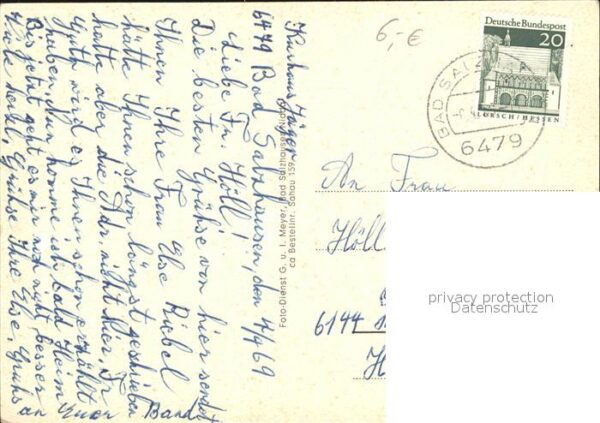 Kurhaus Jägen
6479 Bad Salzhausen, den 4/9 69
Liebe Fr. Höll!
Die besten Grühse von hier sendet
Ihnen Ihre Frau Else Riebel
hätte Ihnen schon längst geschrieben
hatte aber die Adr nicht hier. Fr
Guth wird es Ihnen schon erzählt
haben. Nun komme ich bald Heim
Bis jetzt geht es mir noch nicht besser
Gute Ihre Else, Grühs an
Euer Band
Foto-Dienst G. u. I. Meyer, Bad Salzhausen
ca Bestellnr. Sahau 159
6,-€
Deutsche Bundespost
20
LORSCH/HESSEN
BAD SALZ
6479
An Frau
Höll
6144
H
privacy protection
Datenschutz